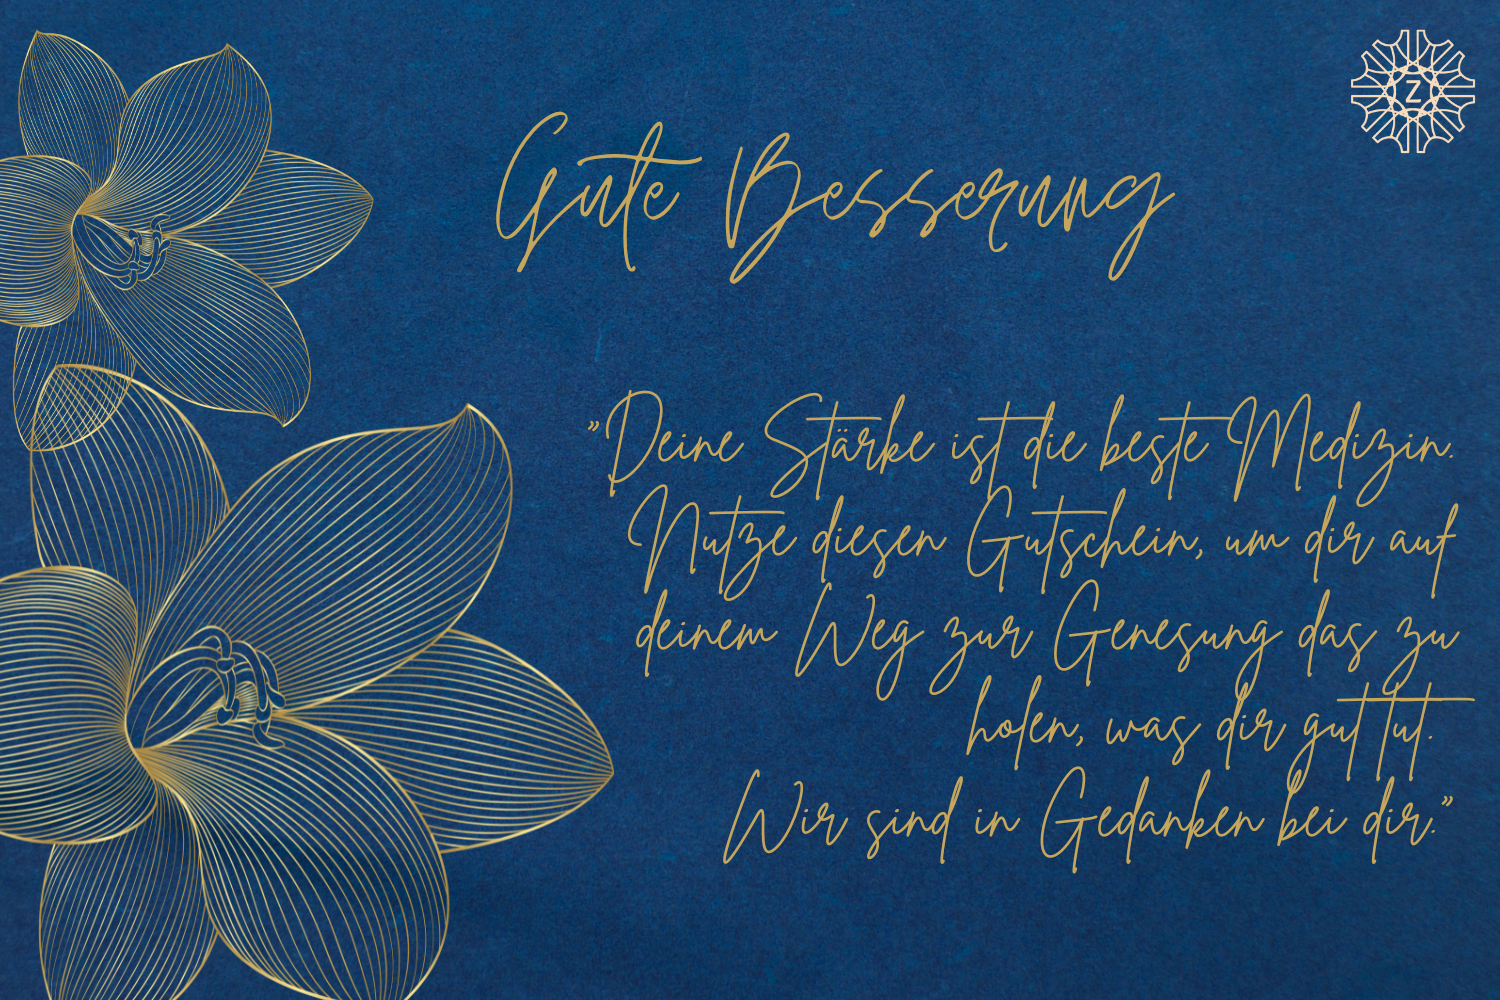 Z
Gute Besserung
"Deine Stärke ist die beste Medizin.
Nutze diesen Gutschein, um dir auf
deinem Weg zur Genesung das zu
holen, was dir gut tut.
Wir sind in Gedanken bei dir."